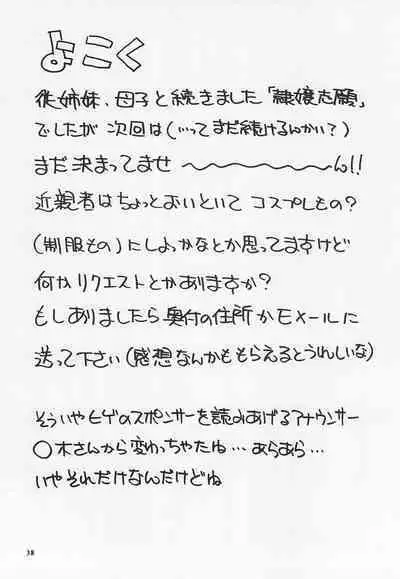 よこく
従姉妹、母子と続きました「隷嬢志願」
でしたが 次回は(…ってまだ続けるんかい?)
まだ決まってませ〜〜〜〜〜〜ん!!
近親者はちょっとおいといて コスプレもの?
(制服もの)にしよっかなとか思ってますけど
何かリクエストとかありますか?
もしありましたら奥付の住所かEメールに
送って下さい(感想なんかももらえるとうれしいな)
そういやヒゲのスポンサーを読みあげるアナウンサー
〇木さんから変わっちゃたね…あらあら…
いやそれだけなんだけどね
38